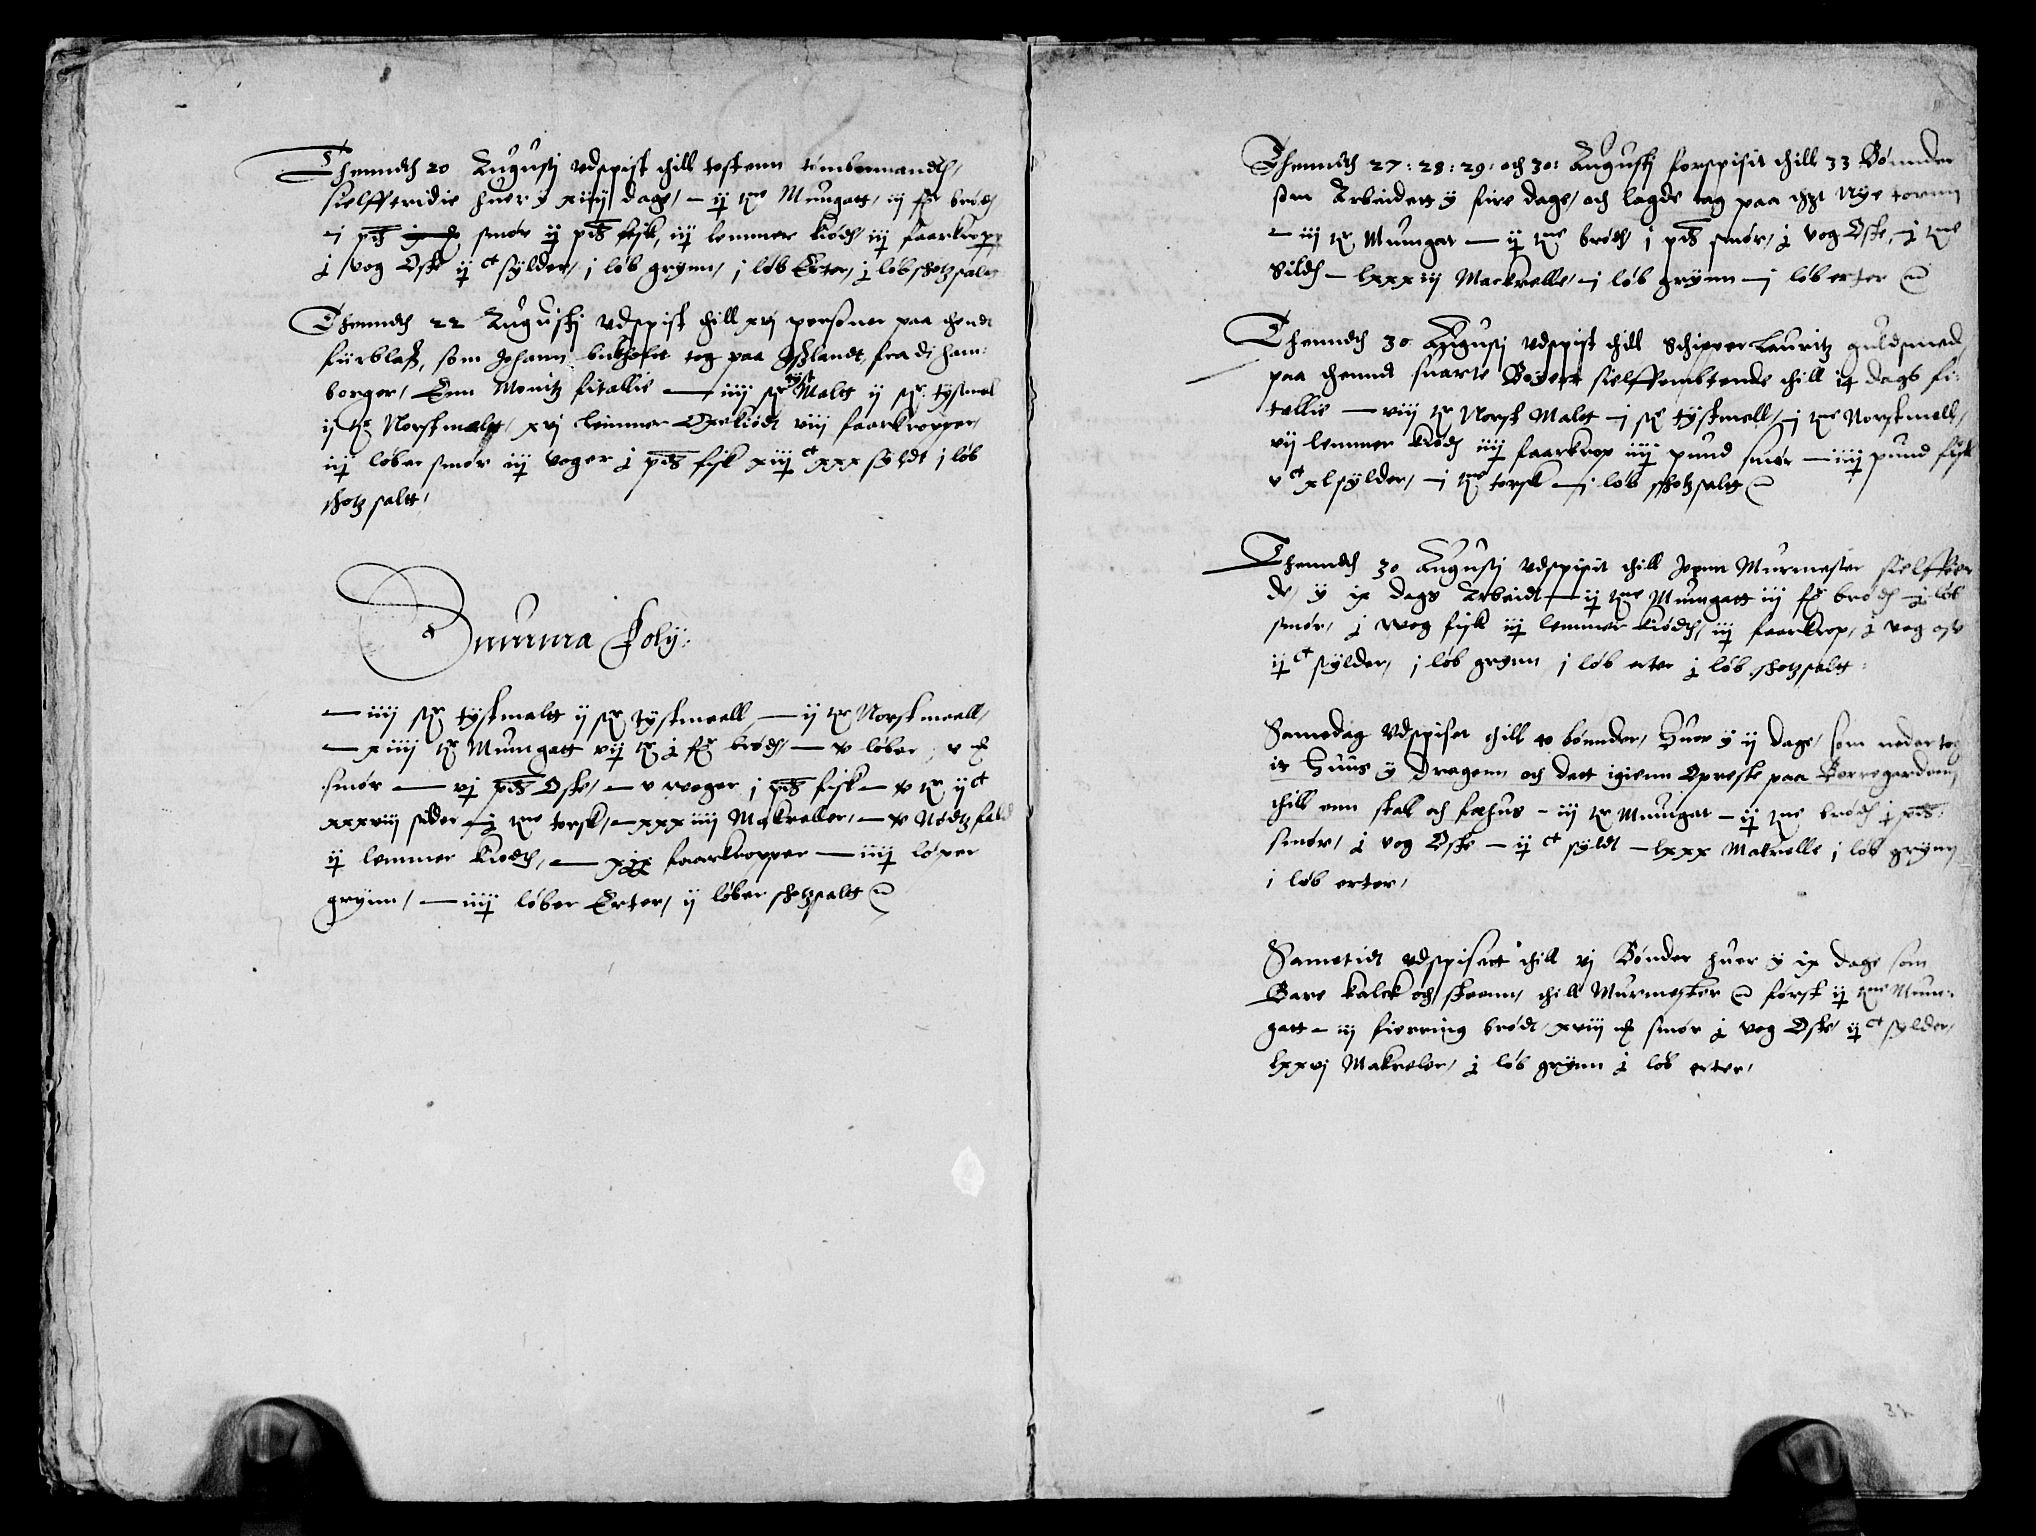 Thenndh 20 Augustj vdspist thill tostenn tømbermandh,
sielfftridie huer y xiiij dage, – ij tne Mungatt, iij fr brødh
– j pds smør ij pds fisk, iij lemmer kiødh iij faarkropp
j vog Oste ij ct sylder, j løb grynn, j løb Erter, j løb shotzsalt
Thenndh 22 Augustj vdspist thill xvj personer paa thend
fiirblass, som Johann tog paa Isslandt, fra di ham:
borger, Enn Monitz fitallie – iiij str tyst Maltt ij str. tystmel
ij tr Norst maltt, xvj lemmer Oxekiødt viij faarkropper,
iij løber smør iij voger j pds fisk xiij ct xxx syldt j løb
shotz saltt,
Summa Foly:
– iiij str tystmaltt ij str tystmeell – ij tr Norstmeell,
– xiiij tr Mumgatt vij tr j fr brødh, – v løber, v
smør – vj pds Oste, – v woger j pds fisk – v tr ij ct
xxxviij silder – j tne torsk, – xxxiiij Makreller, – v Nødtzfald
ij lemmer kiødh, – xix faarkropper – iiij løper
grynn, – iiij løber Erter, ij løber shotzsaltt
Thenndh 27: 28: 29: och 30: Augustj forspisit thill 33 Bønnder
som Arbeidett y fire dage, och lagde tag paa thet Nye tornn
– iij tr Mumgat – ij tne brødh j pds smør, j vog Oste, – j tne
Sildh – lxxxij Mackrelle, – j løb grynn – j løb erter
Thenndh 30 Augustj vdspist thill Schipper Lauritz guldsmed,
paa thennd suarte Boyert sielffembtende thill 14 dags fi:
tallie – viij tr Norst Malt – j str tystmell, – j tne Norstmell,
vij lemmer kiødh iiij faarkrop iiij pund smør – iiij pund fisk
v ct xl sylder, – j tne torsk – j løb shotzsaltt
Thenndh 30 Augustj vdspisit thill Jepnn Murmester sielffier
de, y ix dags Arbeidt – ij tne Mumgatt iij fr brødh – j løb
smør, j wog fisk iij lemmer kiødh, iij faarkrop, j vog ost
ij ct sylder, j løb grynn j løb erter j løb shotzsaltt:
Samedag vdspiset thill 40 bønnder, Huer y ij dage, som neder tog
it Huus y Dragenn och dett igienn Opreste paa Borregardenn,
thill enn stal och fæhus – iij tr Mumgat – ij tne brødh j pds:
smør, j vog Oste – ij ct syldt – lxxx Makrelle j løb grynn
j løb erter,
Sametidt vdspisett thill vj Bønder huer y ix dage som
Bare kalck och steenn, thill Murmester først ij tne Mum:
gatt – iij fierring brødt, xviij smør j vog Oste ij ct sylder,
lxxvj Makreler, j løb grynn j løb erter,